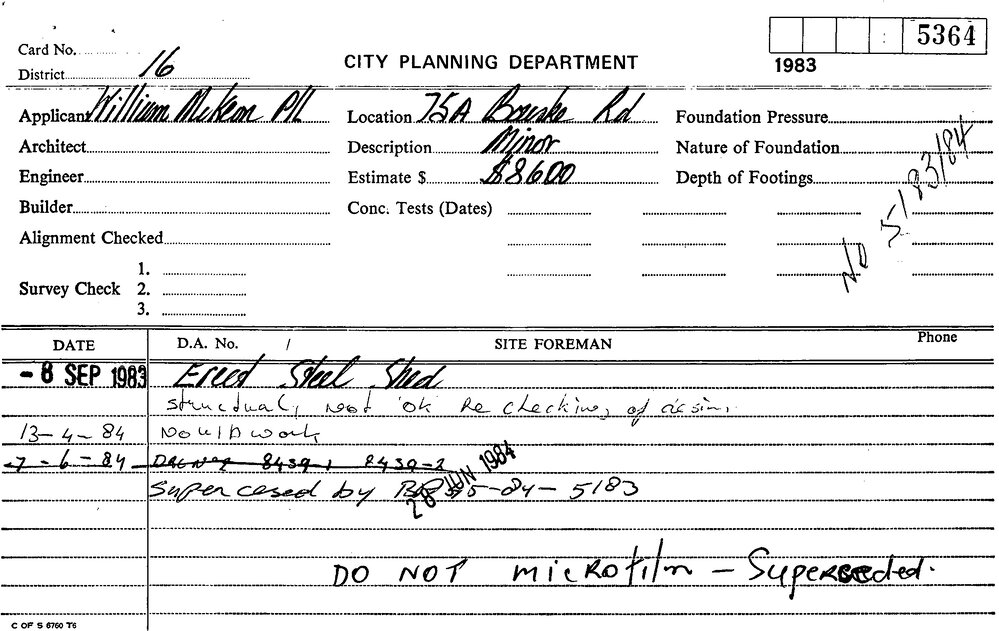 5364
Card No.
CITY PLANNING DEPARTMENT
1983
District 16
Applicant William McKeon P/L Location 75A Bourke Rd Foundation Pressure
Architect Description Minor Nature of Foundation
Engineer Estimate $ $8600 Depth of Footings
Builder Conc. Tests (Dates)
NO 5183/84
Alignment Checked
1.
Survey Check 2.
3.
DATE D.A. No. / SITE FOREMAN Phone
-8 SEP 1983 Erect Steel Shed
structural, not ok Re checking of design
13-4-84 work
7-6-84 8439-1 8439-2
28 JUN 1984
Superceded by 5-84-5183
DO NOT microfilm - Superseded.
C OF S 6760 T6